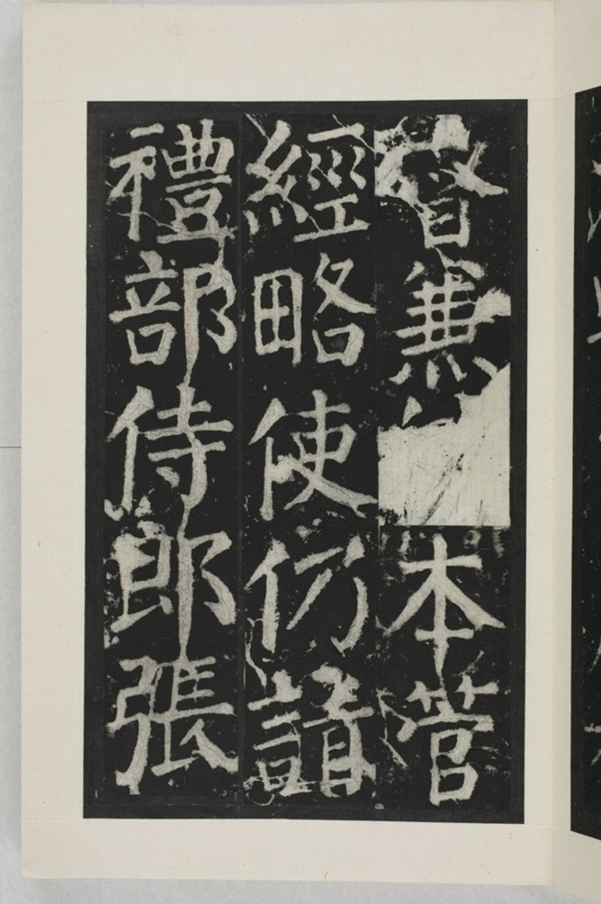 督兼本管
經略使仍請
禮部侍郎張